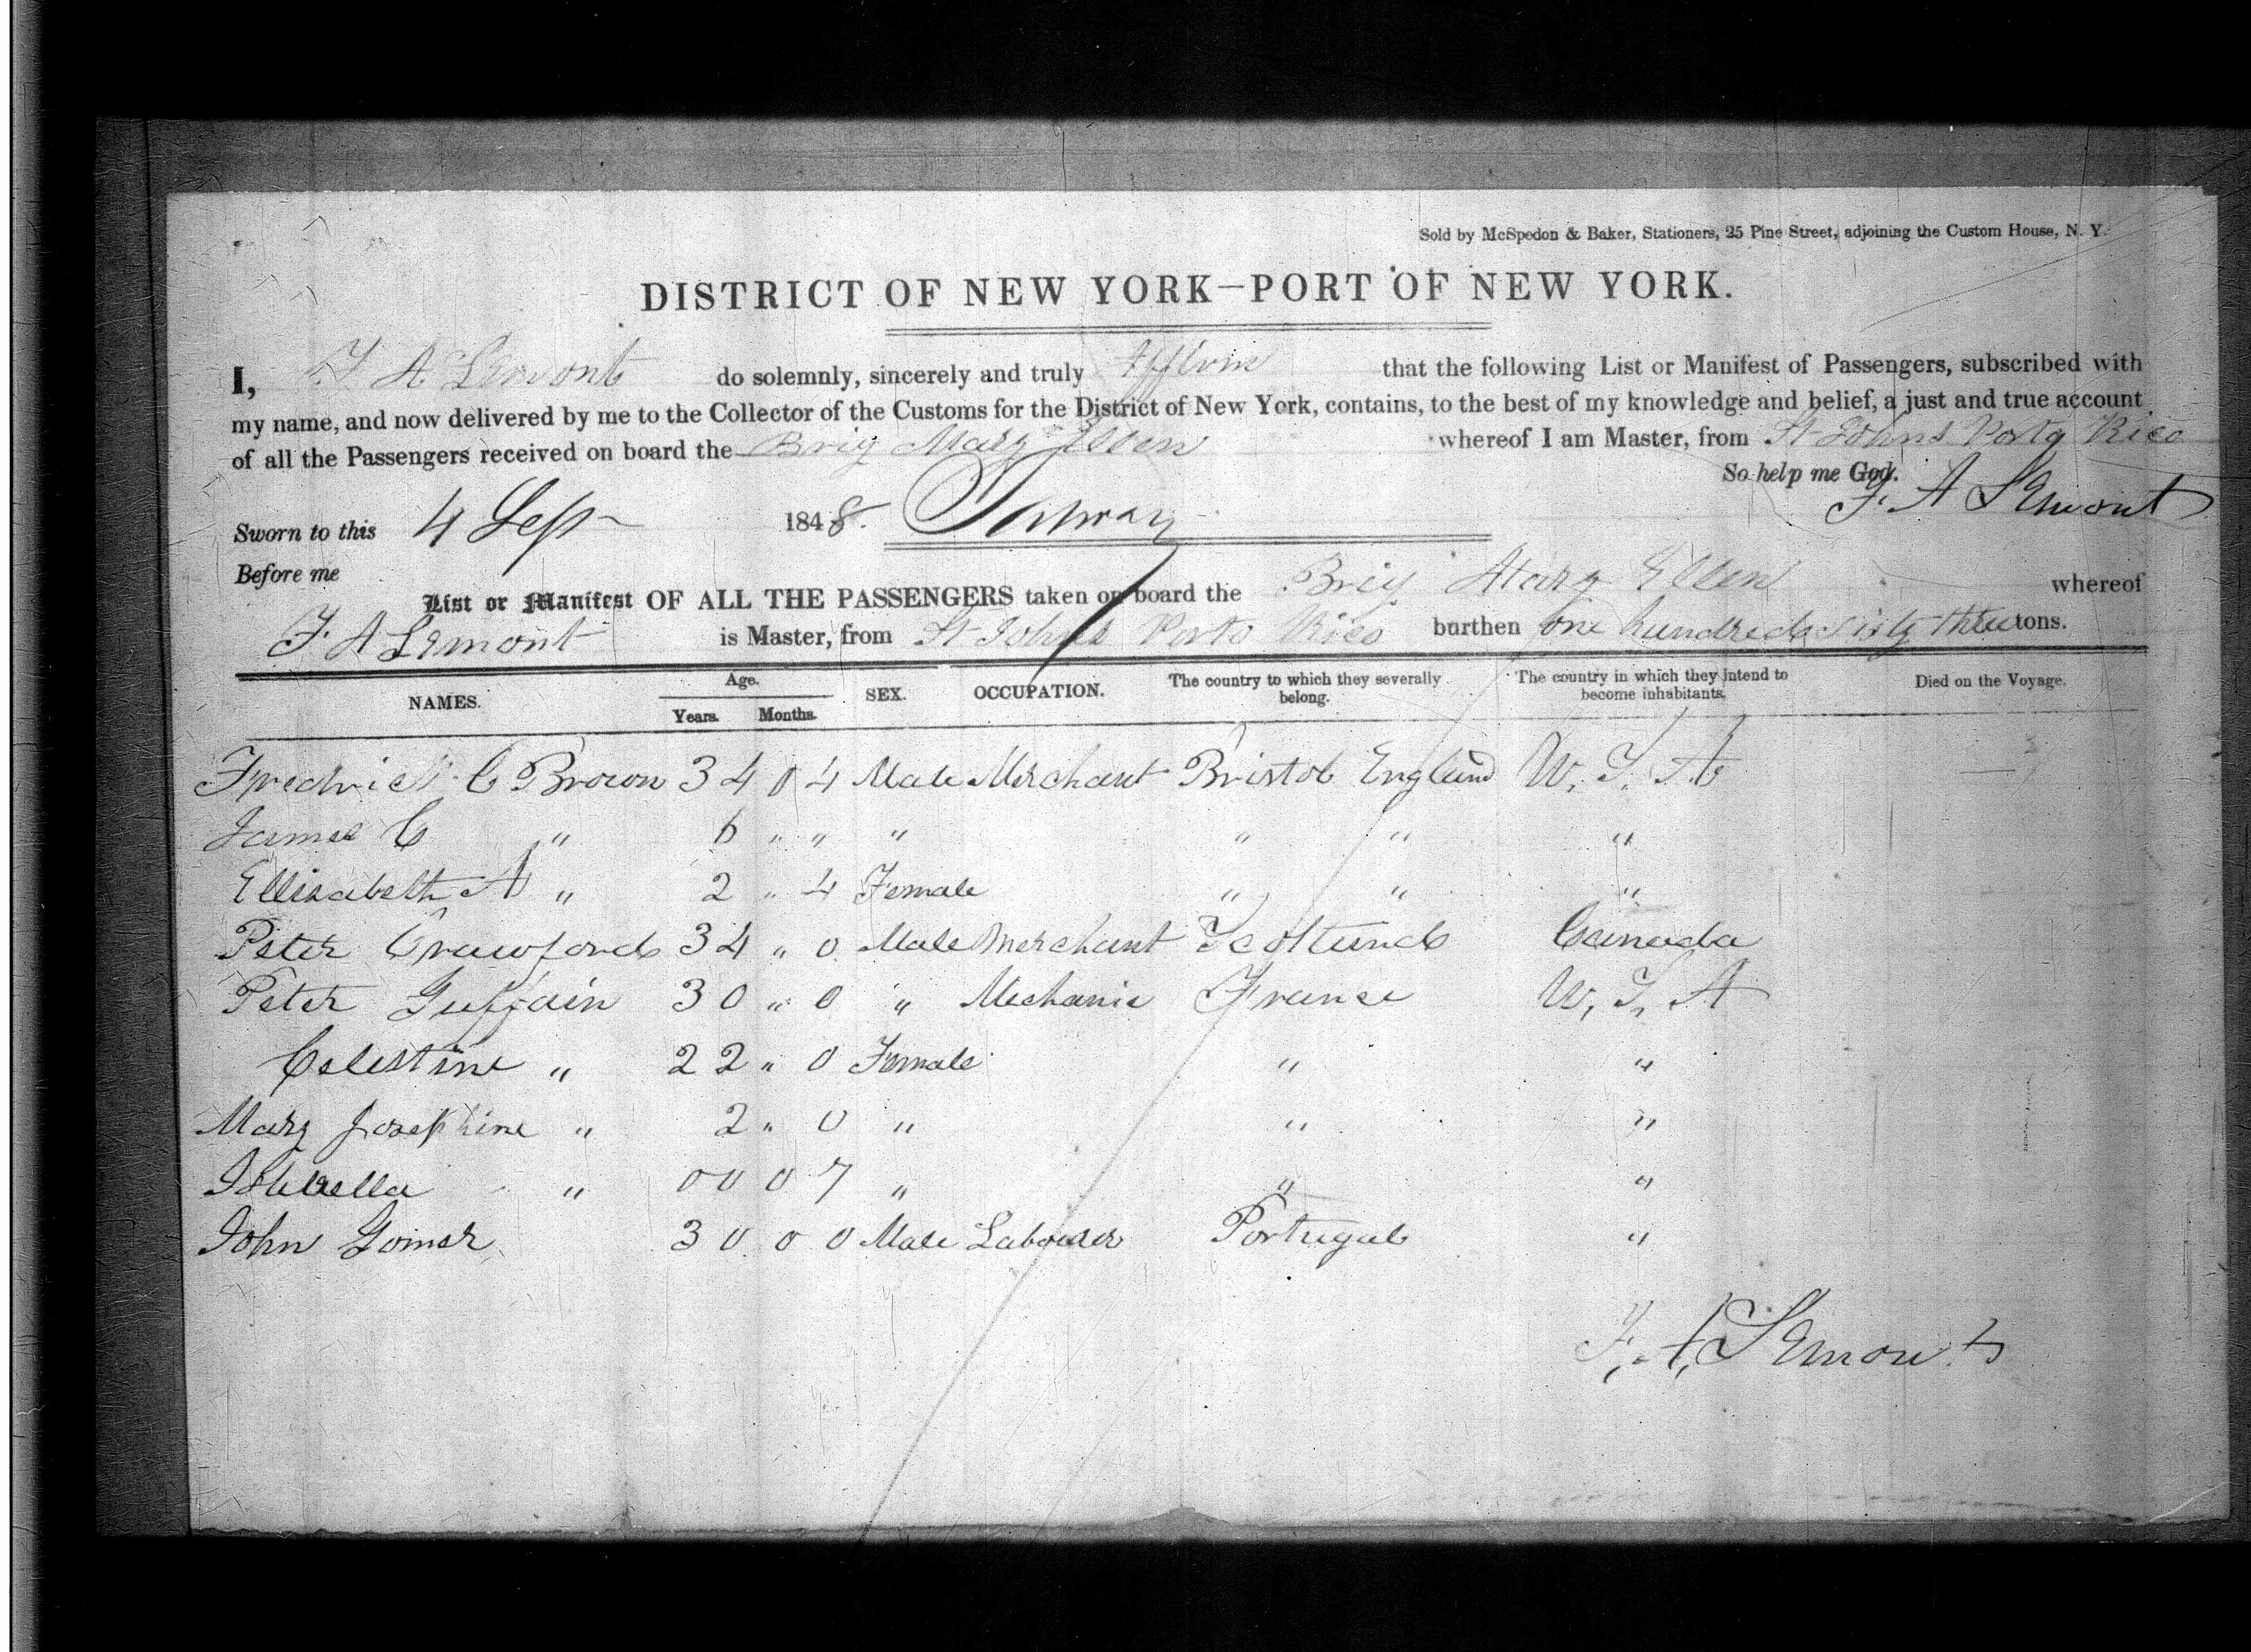 Sold by McSpedon & Baker, Stationers, 25 Pine Street, adjoining the Custom House, N. Y.
DISTRICT OF NEW YORK—PORT OF NEW YORK.
I, F A Lemont do solemnly, sincerely and truly that the following List or Manifest of Passengers, subscribed with
my name, and now delivered by me to the Collector of the Customs for the District of New York, contains, to the best of my knowledge and belief, a just and true account
of all the Passengers received on board the Brig Mary Ellen whereof I am Master, from St Johns Porto Rico
So help me God.
F. A Lemont
Sworn to this 4 Sep 1848.
Before me
List or Manifest OF ALL THE PASSENGERS taken on board the Brig Mary Ellen whereof
F A Lemont is Master, from St Johns Porto Rico burthen one hundred sixty three tons.
NAMES. Age. Years. Months. SEX. OCCUPATION. The country to which they severally belong. The country in which they intend to become inhabitants. Died on the Voyage.
Fredrick C Brown 34 0 4 Male Merchant Bristol England
James C " 6 " " " " " "
Ellisabeth A " 2 " 4 Female " " "
Peter Crawford 34 " 0 Male Merchant Scotland Canada
Peter 30 " 0 " Mechanic France
Celestine " 22 " 0 Female " "
Mary Josephine " 2 " 0 " " "
Isabella " 00 0 7 " " "
John Gomer 30 0 0 Male Labourer Portugal "
F. A. Lemont